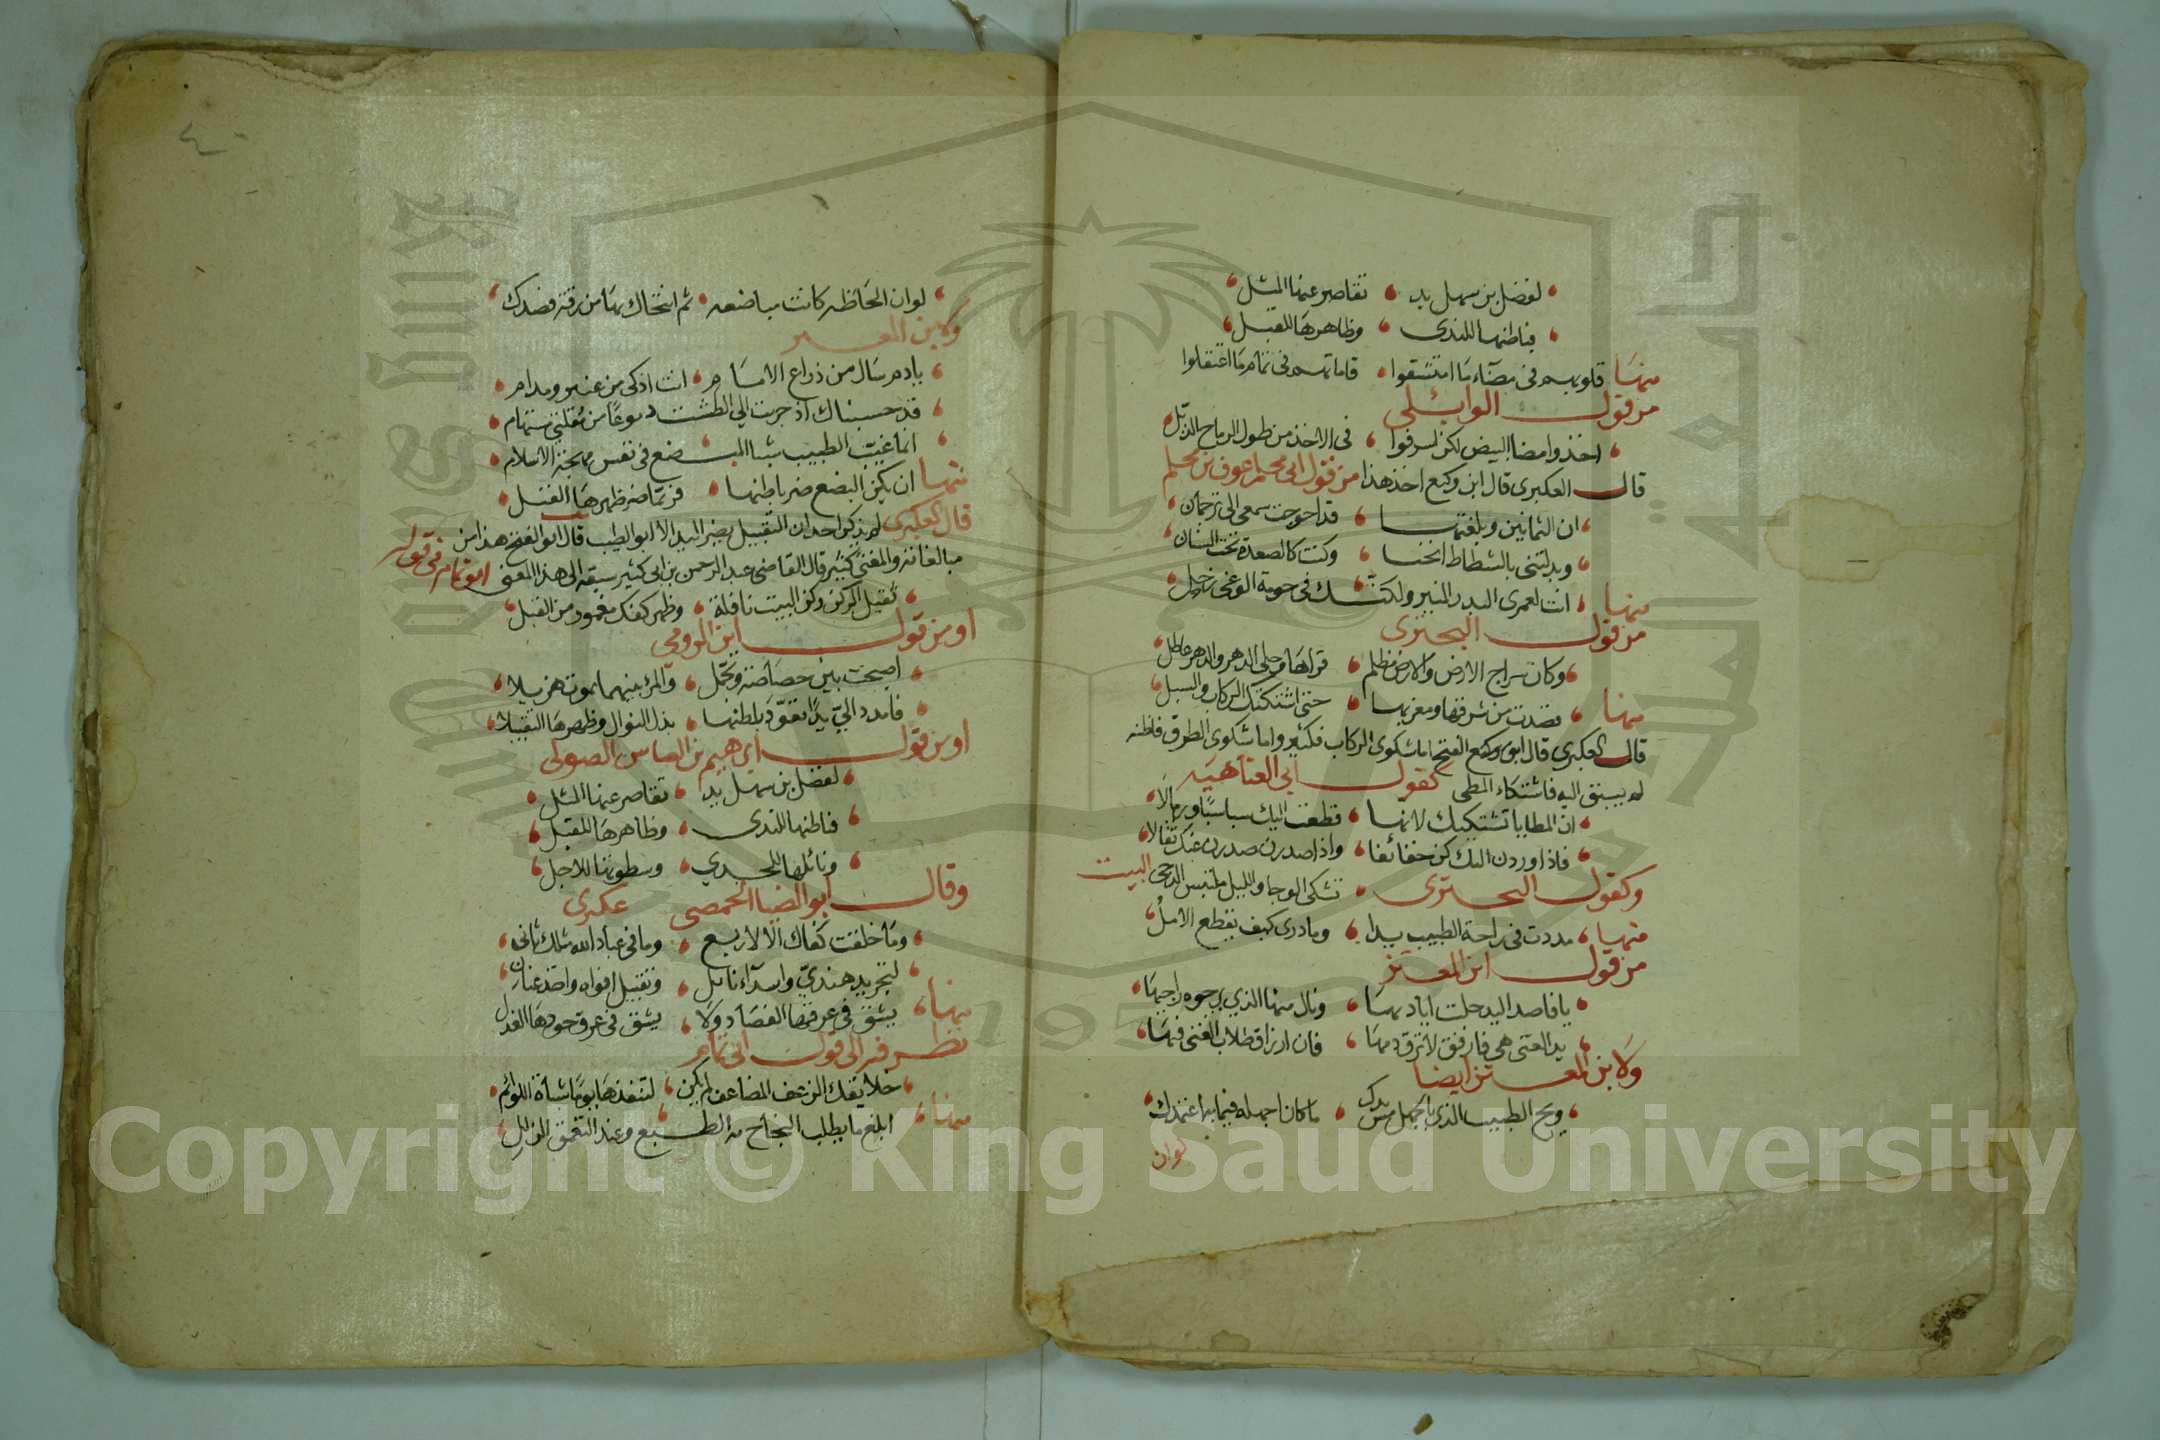 لفضل بن سهل يد تقاصر عنها المثل
فباطنها للندى وظاهرها للقبل
منها قلوبهم في مضآء ما امتشقوا قاماتهم في تمام ما اعتقلوا
من قول الوائلي
اخذوا مضا البيض لكن اسرفوا في الاخذ من طول الرماح الذبّل
قال العكبري قال ابن وكيع اخذ هذا من قول ابي محلم عوف بن محلم
ان الثمانين وبلغتها قد احوجت سمعي الى ترجمان
وبدلتني بالشطاط انحنا وكنت كالصعدة تحت السنان
منها انت لعمري البدر المنير ولكنك في حومة الوغى زحل
من قول البحتري
وكان سراج الارض والارض مظلم والدهر عاطل
منها قصدت من شرقها ومغربها حتى اشتكتك الركاب والسبل
قال العكبري قال ابو وكيع الفتح اما شكوى الركاب فكثير واما شكوى الطرق فاظنه
لم يسبق اليه فاشتكاء المطي كقول ابي العتاهيه
ان المطايا تشتكيك لانها قطعت اليك سباسبا ورمالا
فاذا وردن اليك كن خفائفا واذا صدرن صدرن عنك ثقالا
وكقول البحتري تشكى الوجا والليل ملتبس الدجى البيت
منها مددت في راحة الطبيب يدا وما درى كيف يقطع الامل
من قول ابن المعتز
يا فاصد اليد حلت اياديها ونال منها الذي يرجوه راجيها
يد الغنى هي فارفق لا ترق دمها فان ارزاق طلاب الغنى فيها
ولابن المعتز ايضا
ويح الطبيب الذي يدك ما كان اجهله فيما به اعتمدك
لوان
٤٠
لوان الحاظه كانت مباضعه ثم انتحاك بها من رقة فصدك
ولابن المعتز
يا دم سال من ذراع الامام انت اذكى من عنبر ومدام
قد حسبناك اذ جريت الى الطشت دموعا من مقلتي مستهام
انما غيّب الطبيب شبا المبضع في نفس مهجة الاسلام
منها ان يكن البضع ضر باطنها فربما ضر ظهرها القبل
قال العكبري لم يذكر احد ان التقبيل يضر اليد الا ابو الطيب قال ابو الفتح هذا من
مبالغاته والمغنى كثير قال القاضي عبد الرحمن بن ابي كثير سبقه الى هذا المعنى ابو تمام في قوله
تقبيل الركن ركن البيت نافلة وظهر كفك معمور من القبل
او من قول ابن الرومي
اصبحت بين خصاصة وتجمل والمرء بينهما يموت هزيلا
فامدد اليّ يدا تعوّد بطنها بذل النوال وظهرها التقبيلا
او من قول ابرهيم بن العباس الصولي
لفضل بن سهل يد تقاصر عنها المثل
فباطنها للندى وظاهرها للقبل
ونائلها للجدي وسطوتها للاجل
وقال ابو الضيا الحمصي عكبري
وما خلقت كفاك الا لاربع وما في عباد الله مثلك ثاني
لتجريد هندي واسدآء نائل وتقبيل افواه واخذ عنان
منها يشق في عرقها الفصاد ولا يشق في عرق جودها العذل
نظر فيه الى قول ابي تمام
منها ابلغ ما يطلب النجاح به الطبع وعند التعمق الزلل
Copyright © King Saud University
1957